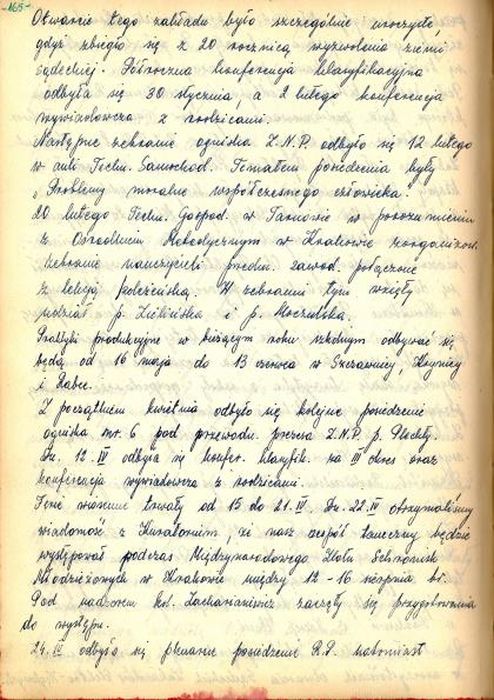 -165-
Otwarcie tego zakładu było szczególnie uroczyste,
gdyż zbiegło się z 20 rocznicą wyzwolenia ziemi
sądeckiej. Półroczna konferencja klasyfikacyjna
odbyła się 30 stycznia, a 2 lutego konferencja
wywiadowcza z rodzicami.
Następne zebranie ogniska Z.N.P. odbyło się 12 lutego
w auli Techn. Samochod. Tematem posiedzenia były
"Problemy moralne współczesnego człowieka.
20 lutego Techn. Gospod. w Tarnowie w porozumieniu
z Ośrodkiem Metodycznym w Krakowie zorganizow.
zebranie nauczycieli przedm. zawod. połączone
z lekcją koleżeńską. W zebraniu tym wzięły
udział p. Zielińska i p. Moczulska.
Praktyki produkcyjne w bieżącym roku szkolnym odbywać się
będą od 16 maja do 13 czerwca w Szczawnicy, Krynicy
i Rabce.
Z początkiem kwietnia odbyło się kolejne posiedzenie
ogniska nr. 6 pod przewodn. prezesa Z.N.P. p. Plechty.
Dn. 12.IV odbyła się konfer. klasyfik. za III okres oraz
konferencja wywiadowcza z rodzicami.
Ferie wiosenne trwały od 15 do 21.IV. Dn. 22.IV otrzymaliśmy
wiadomość z Kuratorium, że nasz zespół taneczny będzie
występował podczas Międzynarodowego Zlotu Schronisk
Młodzieżowych w Krakowie między 12-16 sierpnia br.
Pod nadzorem kol. Zachariasiewicz zaczęły się przygotowania
do występu.
24.IV odbyło się plenarne posiedzenie R.P. natomiast